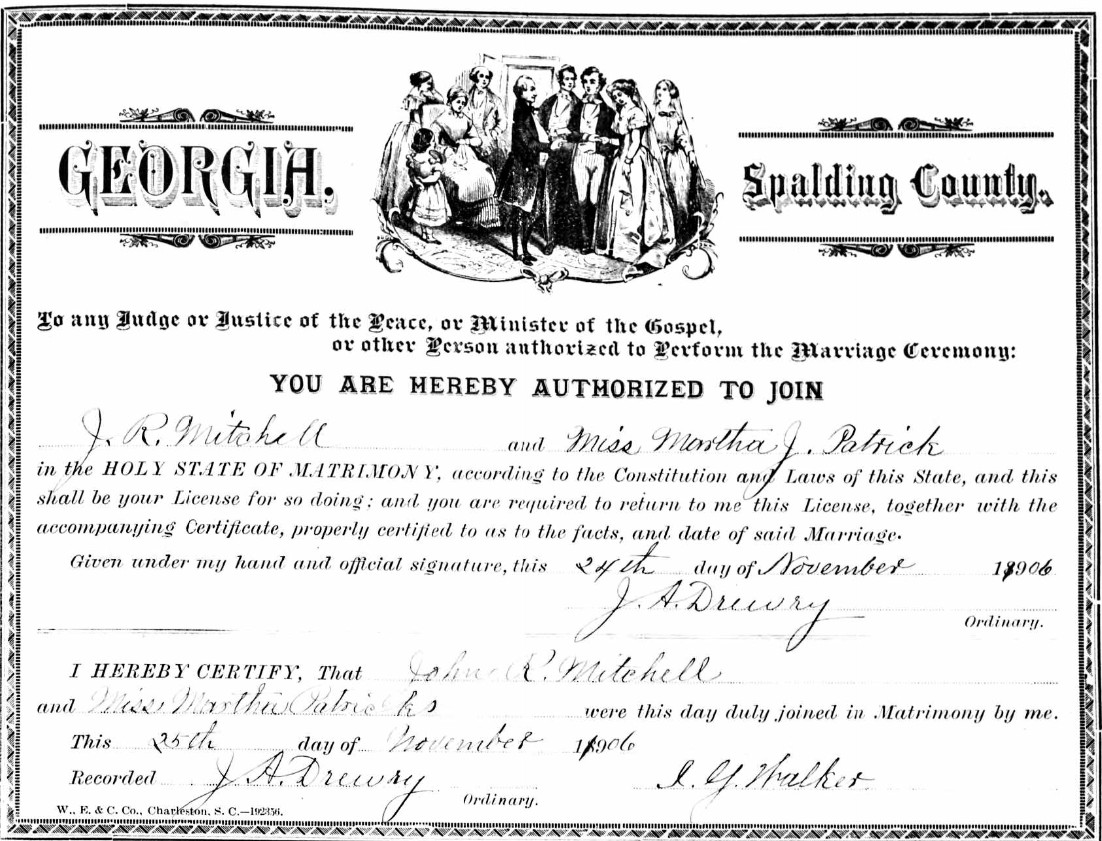 GEORGIA.
Spalding County.
To any Judge or Justice of the Peace, or Minister of the Gospel,
or other Person authorized to Perform the Marriage Ceremony:
YOU ARE HEREBY AUTHORIZED TO JOIN
J. R. Mitchell and Miss Martha J. Patrick
in the HOLY STATE OF MATRIMONY, according to the Constitution and Laws of this State, and this
shall be your License for so doing; and you are required to return to me this License, together with the
accompanying Certificate, properly certified to as to the facts, and date of said Marriage.
Given under my hand and official signature, this 24th day of November 1906
J. A. Drewry
Ordinary.
I HEREBY CERTIFY, That John R. Mitchell
and Miss Martha Patricks were this day duly joined in Matrimony by me.
This 25th day of November 1906
Recorded J. A. Drewry I. G. Walker
Ordinary.
W., E. & C. Co., Charleston, S. C.—192356.